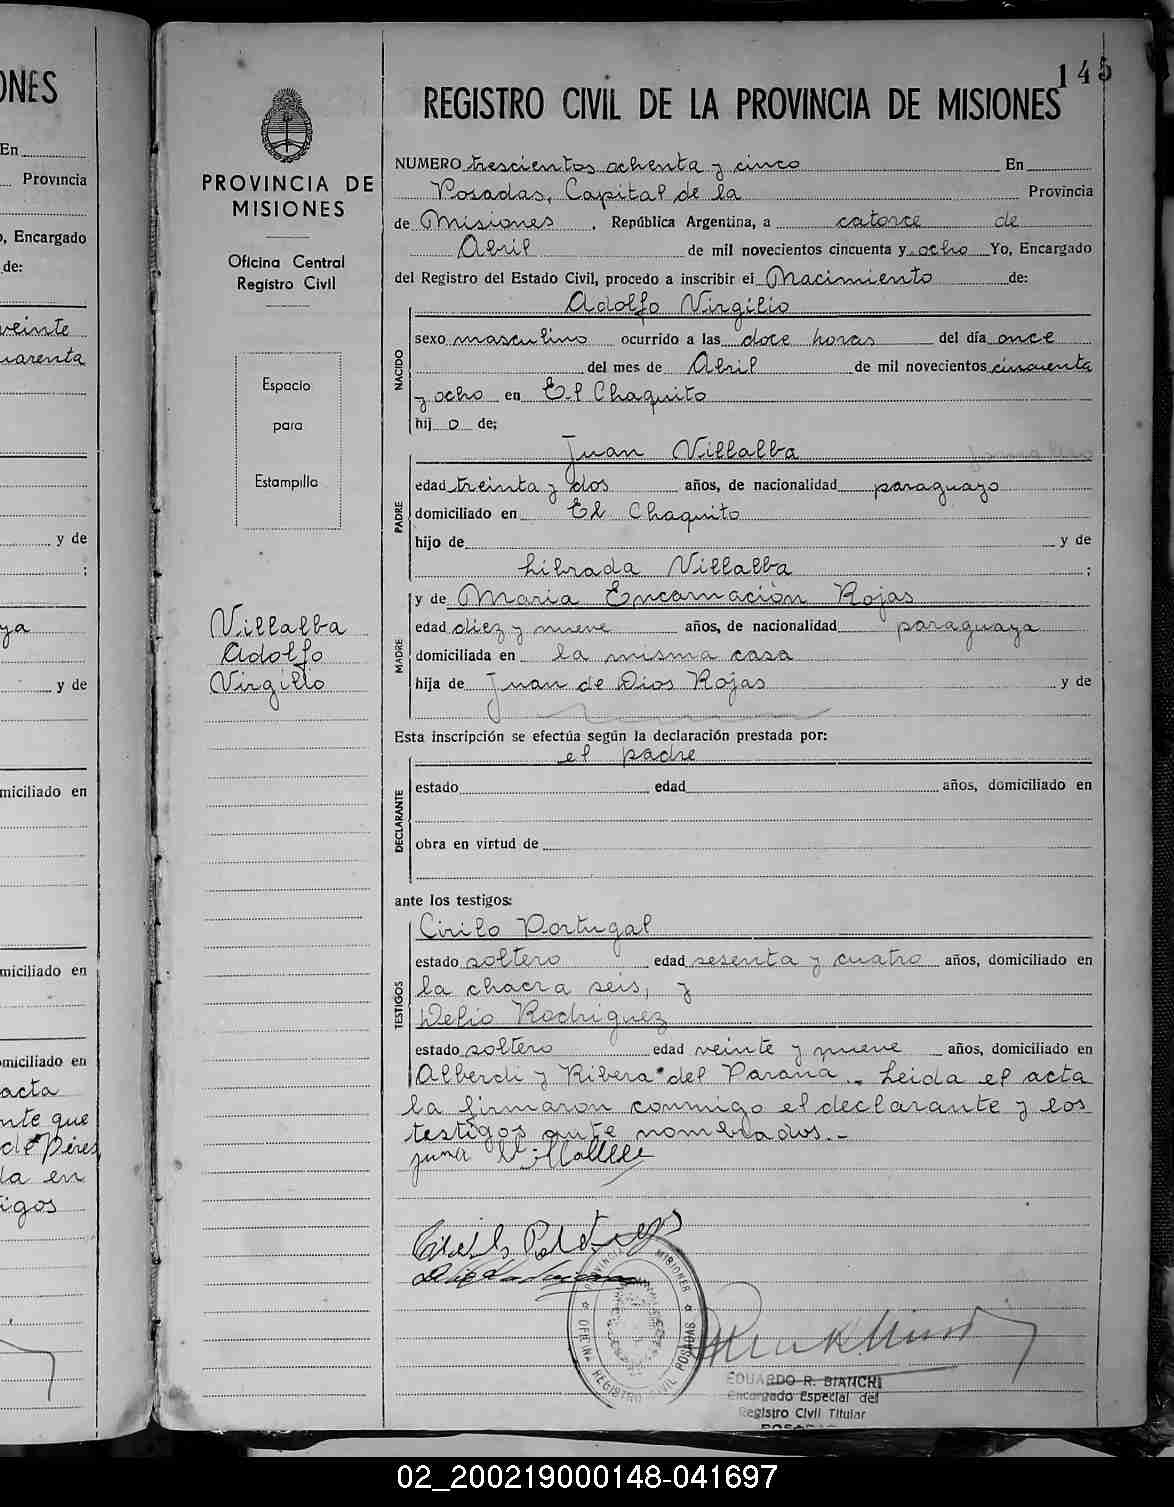 ONES
En
Provincia
o, Encargado
de:
veinte
uarenta
y de
;
ya
y de
miciliado en
miciliado en
omiciliado en
acta
nte que
de Pérez
da en
igos
PROVINCIA DE
MISIONES
Oficina Central
Registro Civil
Espacio
para
Estampilla
Villalba
Adolfo
Virgilio
145
REGISTRO CIVIL DE LA PROVINCIA DE MISIONES
NUMERO trescientos ochenta y cinco En
Posadas, Capital de la Provincia
de Misiones, República Argentina, a catorce de
Abril de mil novecientos cincuenta y ocho Yo, Encargado
del Registro del Estado Civil, procedo a inscribir el Nacimiento de:
NACIDO
Adolfo Virgilio
sexo masculino ocurrido a las doce horas del día once
del mes de Abril de mil novecientos cincuenta
y ocho en El Chaquito
hij o de;
PADRE
Juan Villalba
edad treinta y dos años, de nacionalidad paraguayo
domiciliado en El Chaquito
hijo de y de
Librada Villalba ;
MADRE
y de Maria Encarnación Rojas
edad diez y nueve años, de nacionalidad paraguaya
domiciliada en la misma casa
hija de Juan de Dios Rojas y de
Esta inscripción se efectúa según la declaración prestada por:
DECLARANTE
el padre
estado edad años, domiciliado en
obra en virtud de
ante los testigos:
TESTIGOS
Cirilo Portugal
estado soltero edad sesenta y cuatro años, domiciliado en
la chacra seis, y
Delio Rodriguez
estado soltero edad veinte y nueve años, domiciliado en
Alberdi y Ribera del Paraná.- Leida el acta
la firmaron conmigo el declarante y los
testigos ante nombrados.-
PROVINCIA MISIONES
OFICINA REGISTRO CIVIL POSADAS
EDUARDO R. BIANCHI
Encargado Especial del
Registro Civil Titular
POSADAS
02_200219000148-041697